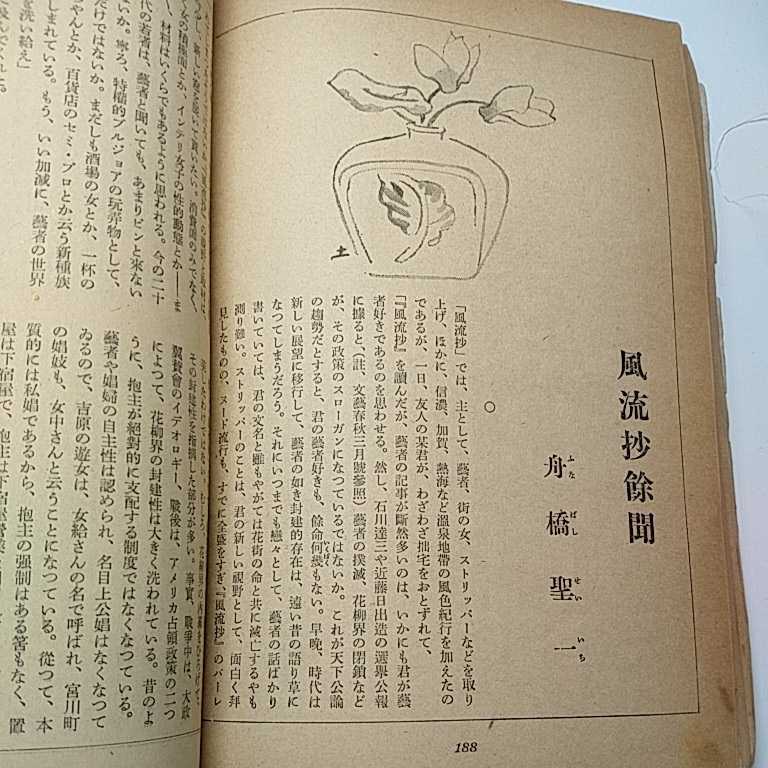 風流抄餘聞
舟橋聖一
ふなばしせいいち
○
「風流抄」では、主として、藝者、街の女、ストリッパーなどを取り
上げ、ほかに、信濃、加賀、熱海など溫泉地帶の風色紀行を加えたの
であるが、一日、友人の某君が、わざわざ拙宅をおとずれて、
「『風流抄』を讀んだが、藝者の記事が斷然多いのは、いかにも君が藝
者好きであるのを思わせる。然し、石川達三や近藤日出造の選擧公報
に據ると(註、文藝春秋三月號參照)藝者の撲滅、花柳界の閉鎖など
が、その政策のスローガンになつているではないか。これが天下公論
の趨勢だとすると、君の藝者好きも、餘命何幾もない。早晩、時代は
新しい展望に移行して、藝者の如き封建的存在は、遠い昔の語り草に
なつてしまうだろう。それにいつまでも戀々として、藝者の話ばかり
書いていては、君の文名と雖もやがては花街の命と共に滅亡するやも
測り難い。ストリッパーのことは、君の新しい視野として、面白く拜
見したものの、ヌード流行も、すでに全盛をすぎ、『風流抄』のバーレ
188
土
新しい
女の積極面とか、インテリ女子の性的動態とか――ま
、材料はいくらでもあるように思われる。今の二十
代の若者は、藝者と聞いても、あまりピンと來ない
ないか。寧ろ、特權的ブルジョアの玩弄物として、
だけではないか。まだしも酒場の女とか、一杯の
ちやんとか、百貨店のセミ・プロとか云う新種族
しまれている。もう、いい加減に、藝者の世界
を洗い給え」
その封建性を指摘した部分が多い。事實、戰爭中は、大政
翼賛會のイデオロギー、戰後は、アメリカ占領政策の二つ
によつて、花柳界の封建性は大きく洗われている。昔のよ
うに、抱主が絕對的に支配する制度ではなくなつている。
藝者や娼婦の自主性は認められ、名目上公娼はなくなつて
ゐるので、吉原の遊女は、女給さんの名で呼ばれ、宮川町
の娼妓も、女中さんと云うことになつている。從つて、本
質的には私娼であるから、抱主の強制はある筈もなく、置
屋は下宿屋で、抱主は下宿屋